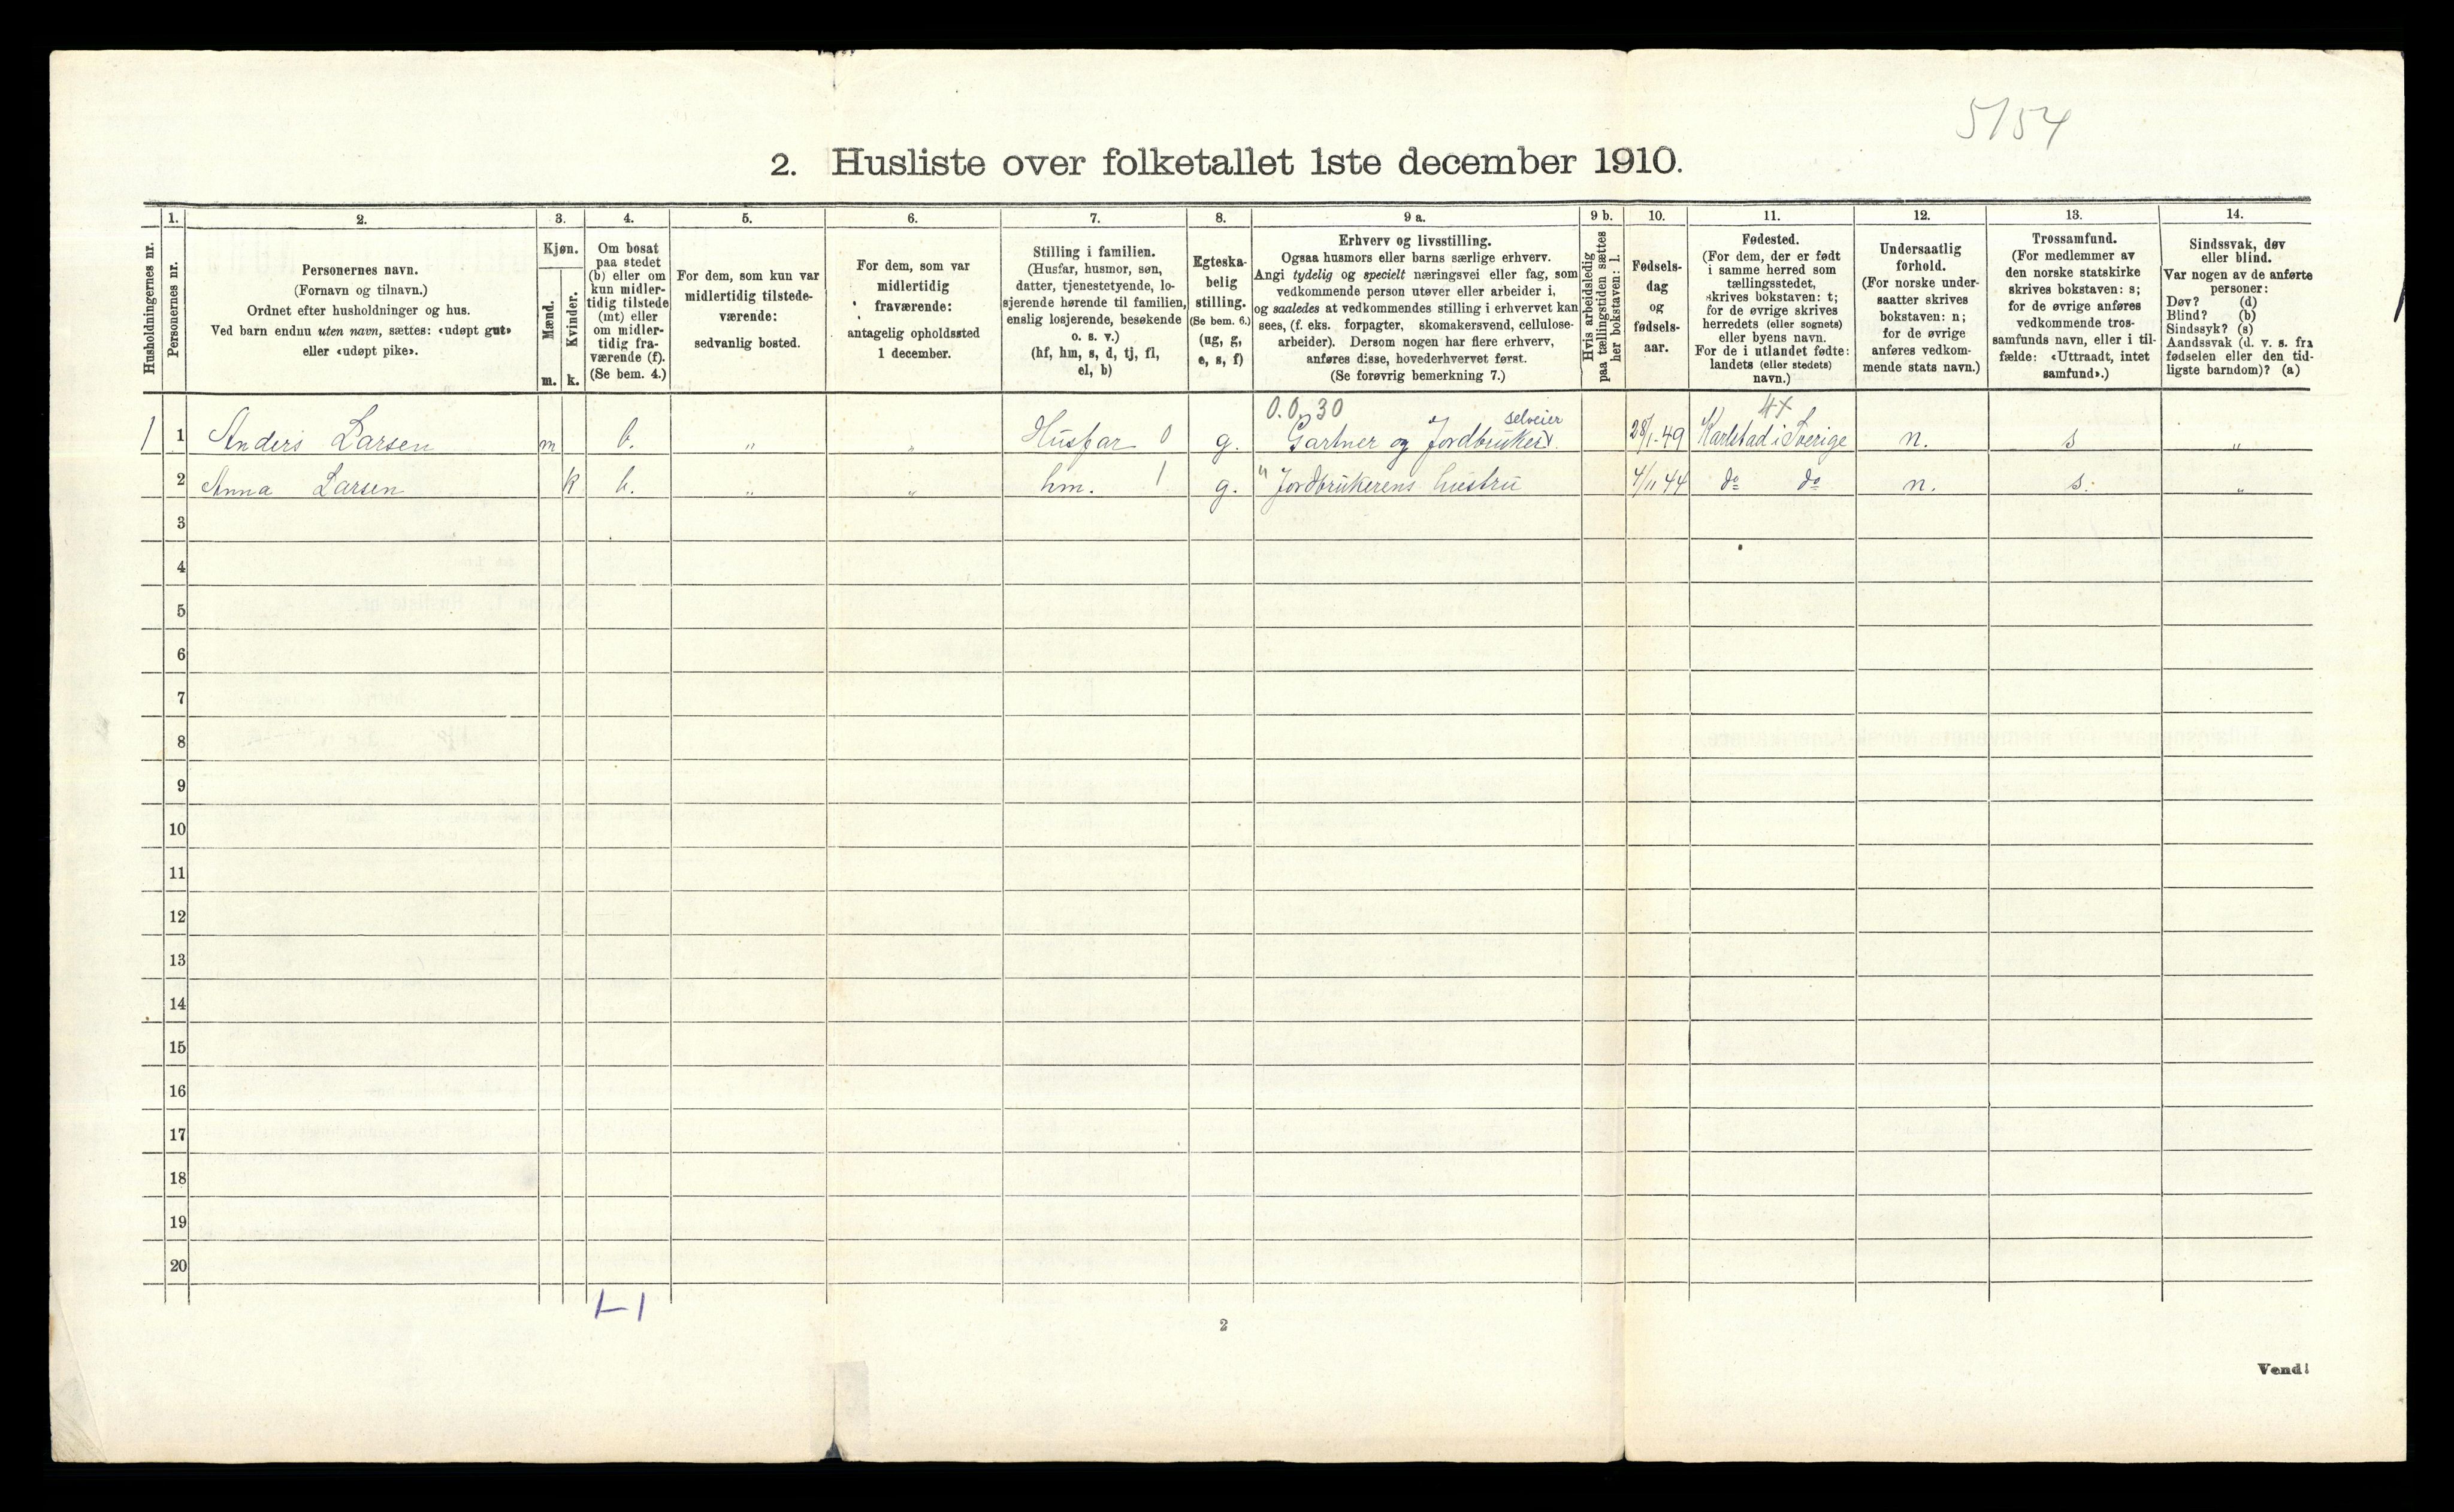 5154
2. Husliste over folketallet 1ste december 1910.
Husholdningernes nr.
1.
Personernes nr.
2.
Personernes navn.
(Fornavn og tilnavn.)
Ordnet efter husholdninger og hus.
Ved barn endnu uten navn, sættes: «udøpt gut»
eller «udøpt pike».
3.
Kjøn.
Mænd.
Kvinder.
m. k.
4.
Om bosat
paa stedet
(b) eller om
kun midler-
tidig tilstede
(mt) eller
om midler-
tidig fra-
værende (f).
(Se bem. 4.)
5.
For dem, som kun var
midlertidig tilstede-
værende:
sedvanlig bosted.
6.
For dem, som var
midlertidig
fraværende:
antagelig opholdssted
1 december.
7.
Stilling i familien.
(Husfar, husmor, søn,
datter, tjenestetyende, lo-
sjerende hørende til familien,
enslig losjerende, besøkende
o. s. v.)
(hf, hm, s, d, tj, fl,
el, b)
8.
Egteska-
belig
stilling.
(Se bem. 6.)
(ug, g,
e, s, f)
9 a.
Erhverv og livsstilling.
Ogsaa husmors eller barns særlige erhverv.
Angi tydelig og specielt næringsvei eller fag, som
vedkommende person utøver eller arbeider i,
og saaledes at vedkommendes stilling i erhvervet kan
sees, (f. eks. forpagter, skomakersvend, cellulose-
arbeider). Dersom nogen har flere erhverv,
anføres disse, hovederhvervet først.
(Se forøvrig bemerkning 7.)
9 b.
Hvis arbeidsledig
paa tællingstiden sættes
her bokstaven: l.
10.
Fødsels-
dag
og
fødsels-
aar.
11.
Fødested.
(For dem, der er født
i samme herred som
tællingsstedet,
skrives bokstaven: t;
for de øvrige skrives
herredets (eller sognets)
eller byens navn.
For de i utlandet fødte:
landets (eller stedets)
navn.)
12.
Undersaatlig
forhold.
(For norske under-
saatter skrives
bokstaven: n;
for de øvrige
anføres vedkom-
mende stats navn.)
13.
Trossamfund.
(For medlemmer av
den norske statskirke
skrives bokstaven: s;
for de øvrige anføres
vedkommende tros-
samfunds navn, eller i til-
fælde: «Uttraadt, intet
samfund».)
14.
Sindssvak, døv
eller blind.
Var nogen av de anførte
personer:
Døv? (d)
Blind? (b)
Sindssyk? (s)
Aandssvak (d. v. s. fra
fødselen eller den tid-
ligste barndom)? (a)
0.0,30 selveier
1 1 Anders Larsen m b. „ „ Husfar 0 g. Gartner og Jordbruker 28/1-49 Karlstad i Sverige n. s „
2 Anna Larsen k b. „ „ hm. 1 g. " Jordbrukerens hustru 4/11 44 do do n. s. „
3
4
5
6
7
8
9
10
11
12
13
14
15
16
17
18
19
20
2
Vend!